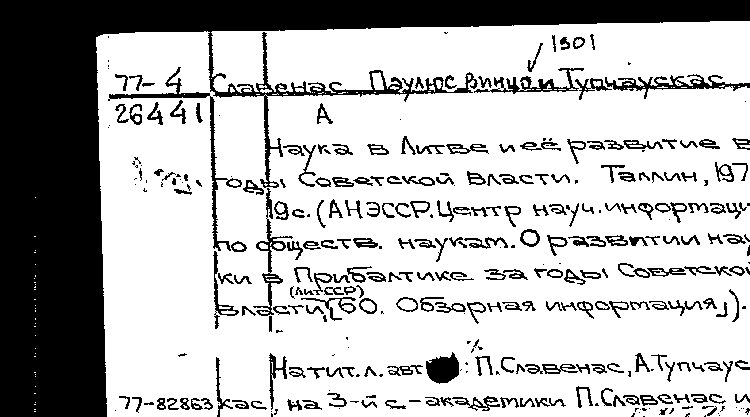 1901
77-4 Славенас Паулюс Винцо и Тупчаускас
26441 А
Наука в Литве и её развитие в
годы Советской власти. Таллин, 197
19с. (АНЭССР. Центр науч. информаци
по обществ. наукам. О развитии нау
ки в Прибалтике за годы Советской
(ЛитССР)
власти, [60. Обзорная информация]).
На тит. л. авт : П. Славенас, А. Тупчаус
77-82863 кас, на 3-й с. - академики П. Славенас и